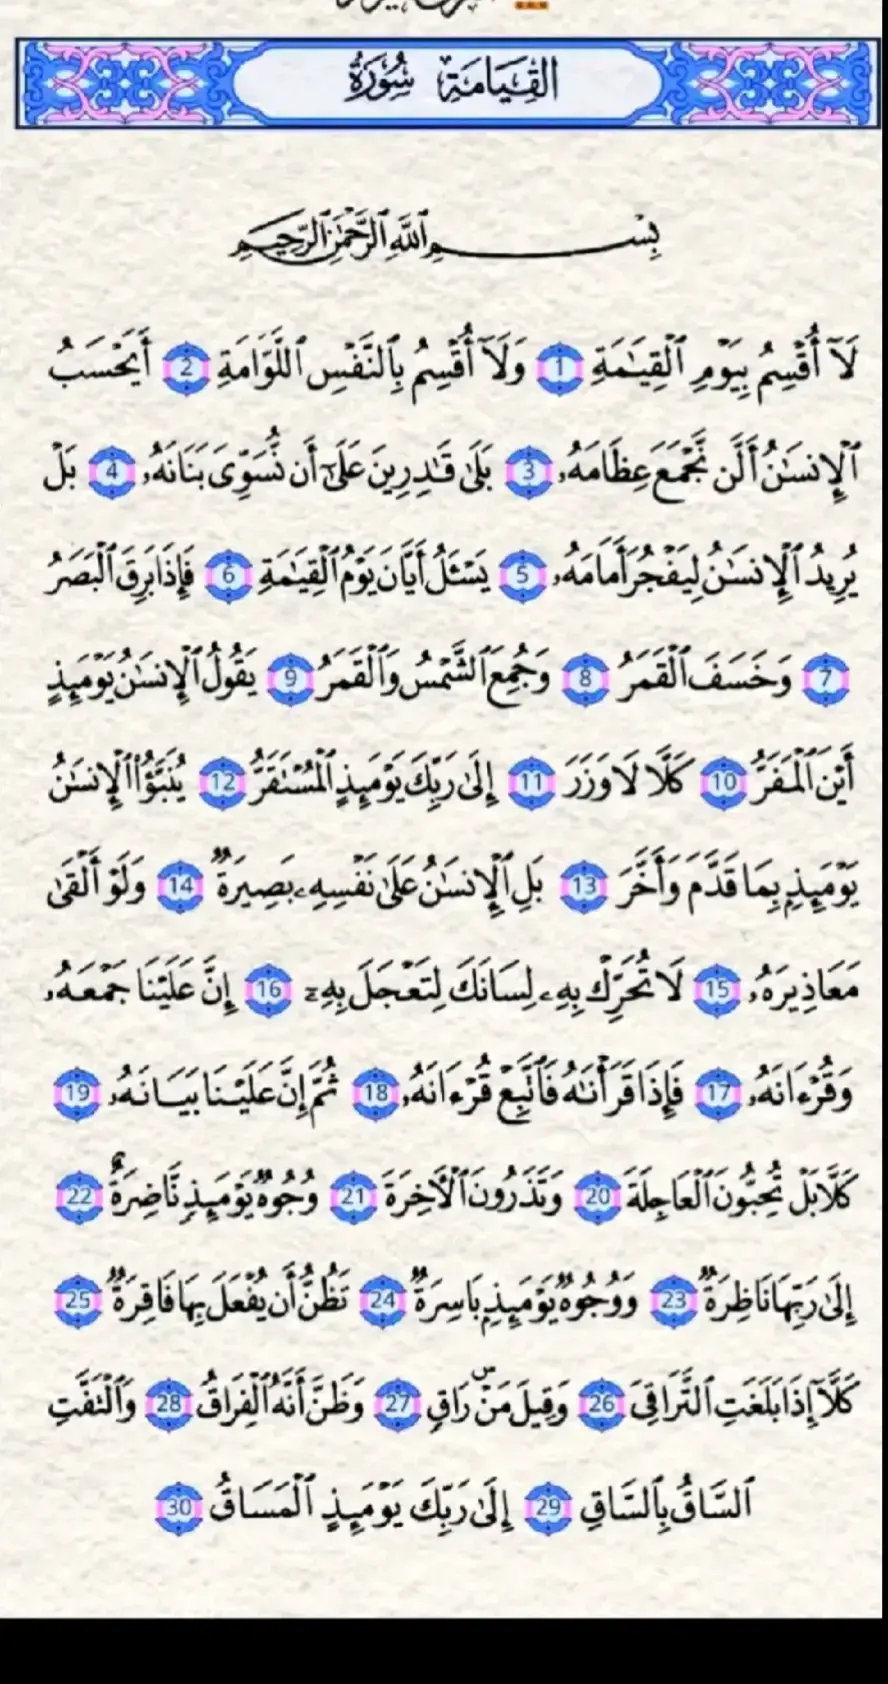 سُورَةُ القِيَامَةِ
بِسْمِ ٱللَّهِ ٱلرَّحْمَٰنِ ٱلرَّحِيمِ
لَآ أُقْسِمُ بِيَوْمِ ٱلْقِيَٰمَةِ 1 وَلَآ أُقْسِمُ بِٱلنَّفْسِ ٱللَّوَّامَةِ 2 أَيَحْسَبُ
ٱلْإِنسَٰنُ أَلَّن نَّجْمَعَ عِظَامَهُۥ 3 بَلَىٰ قَٰدِرِينَ عَلَىٰٓ أَن نُّسَوِّىَ بَنَانَهُۥ 4 بَلْ
يُرِيدُ ٱلْإِنسَٰنُ لِيَفْجُرَ أَمَامَهُۥ 5 يَسْـَٔلُ أَيَّانَ يَوْمُ ٱلْقِيَٰمَةِ 6 فَإِذَا بَرِقَ ٱلْبَصَرُ
7 وَخَسَفَ ٱلْقَمَرُ 8 وَجُمِعَ ٱلشَّمْسُ وَٱلْقَمَرُ 9 يَقُولُ ٱلْإِنسَٰنُ يَوْمَئِذٍ
أَيْنَ ٱلْمَفَرُّ 10 كَلَّا لَا وَزَرَ 11 إِلَىٰ رَبِّكَ يَوْمَئِذٍ ٱلْمُسْتَقَرُّ 12 يُنَبَّؤُا۟ ٱلْإِنسَٰنُ
يَوْمَئِذٍۭ بِمَا قَدَّمَ وَأَخَّرَ 13 بَلِ ٱلْإِنسَٰنُ عَلَىٰ نَفْسِهِۦ بَصِيرَةٌ 14 وَلَوْ أَلْقَىٰ
مَعَاذِيرَهُۥ 15 لَا تُحَرِّكْ بِهِۦ لِسَانَكَ لِتَعْجَلَ بِهِۦٓ 16 إِنَّ عَلَيْنَا جَمْعَهُۥ
وَقُرْءَانَهُۥ 17 فَإِذَا قَرَأْنَٰهُ فَٱتَّبِعْ قُرْءَانَهُۥ 18 ثُمَّ إِنَّ عَلَيْنَا بَيَانَهُۥ 19
كَلَّا بَلْ تُحِبُّونَ ٱلْعَاجِلَةَ 20 وَتَذَرُونَ ٱلْءَاخِرَةَ 21 وُجُوهٌ يَوْمَئِذٍ نَّاضِرَةٌ 22
إِلَىٰ رَبِّهَا نَاظِرَةٌ 23 وَوُجُوهٌ يَوْمَئِذٍۭ بَاسِرَةٌ 24 تَظُنُّ أَن يُفْعَلَ بِهَا فَاقِرَةٌ 25
كَلَّآ إِذَا بَلَغَتِ ٱلتَّرَاقِىَ 26 وَقِيلَ مَنْ ۜ رَاقٍ 27 وَظَنَّ أَنَّهُ ٱلْفِرَاقُ 28 وَٱلْتَفَّتِ
ٱلسَّاقُ بِٱلسَّاقِ 29 إِلَىٰ رَبِّكَ يَوْمَئِذٍ ٱلْمَسَاقُ 30